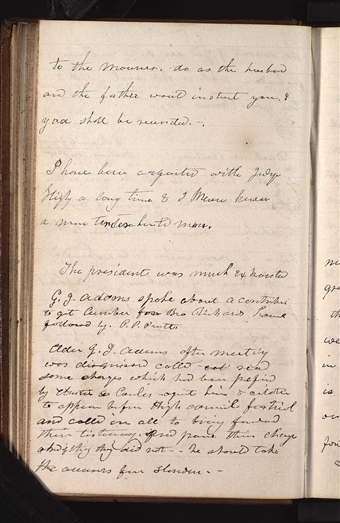 to the mourners. do as the husband
and the father would instruct you, &
you shall be reunited.-
I have been acquainted with Judge
Higby a long time & I Never knew
a more tender hearted man.
The president was much exhausted
G. J. Adams spoke about a contribution
to get lumber for Bro Rickards house
followed by P. P. Pratt
Elder G. J. Adams after meeting
was dismissed called read
some charges which had been prefered
by against him & cited
to appear before High council for trial
and called on all to bring forward
their testimony. and prove their charges
& if they did not - he should take
the accusers for slander.-